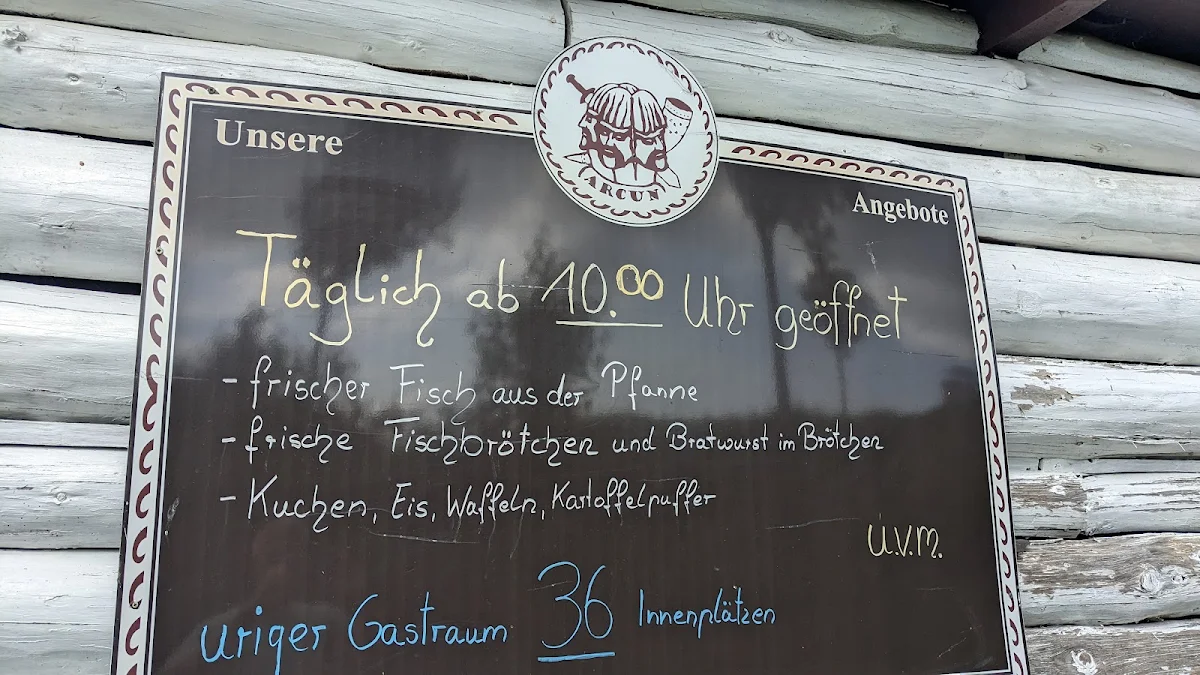 ARCUN
Unsere
Angebote
Täglich ab 10.00 Uhr geöffnet
- frischer Fisch aus der Pfanne
- frische Fischbrötchen und Bratwurst im Brötchen
- Kuchen, Eis, Waffeln, Kartoffelpuffer
u.v.m.
uriger Gastraum 36 Innenplätzen